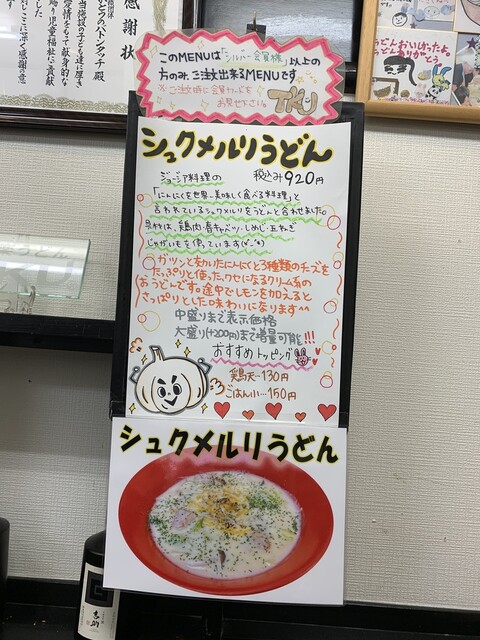 感謝状
どんのバトンタッチ 殿
当施設の子ども達に厚き
愛情をもって献身的な
り児童福祉に貢献
ました
に深く感謝の意
うどんおいしかったよ。
ありがとう。
このMENUは「シルバー会員様」以上の
方のみご注文出来るMENUです
※ご注文時に会員カードを
お見せ下さい。
TKU
シュクメルリうどん
税込み920円
ジョージア料理の
「にんにくを世界一美味しく食べる料理」と
言われているシュクメルリをうどんと合わせました。
具材は、鶏肉・春キャベツ・しめじ・玉ねぎ
じゃがいもを使っています(*^-^*)
ガツンと効いたにんにくと3種類のチーズを
たっぷりと使った、クセになるクリーム系の
おうどんです。途中でレモンを加えると
さっぱりとした味わいになります^^
中盛りまで表示価格
大盛り(+200円)まで増量可能!!!
おすすめトッピング
鶏天…130円
ごはん小…150円
シュクメルリうどん